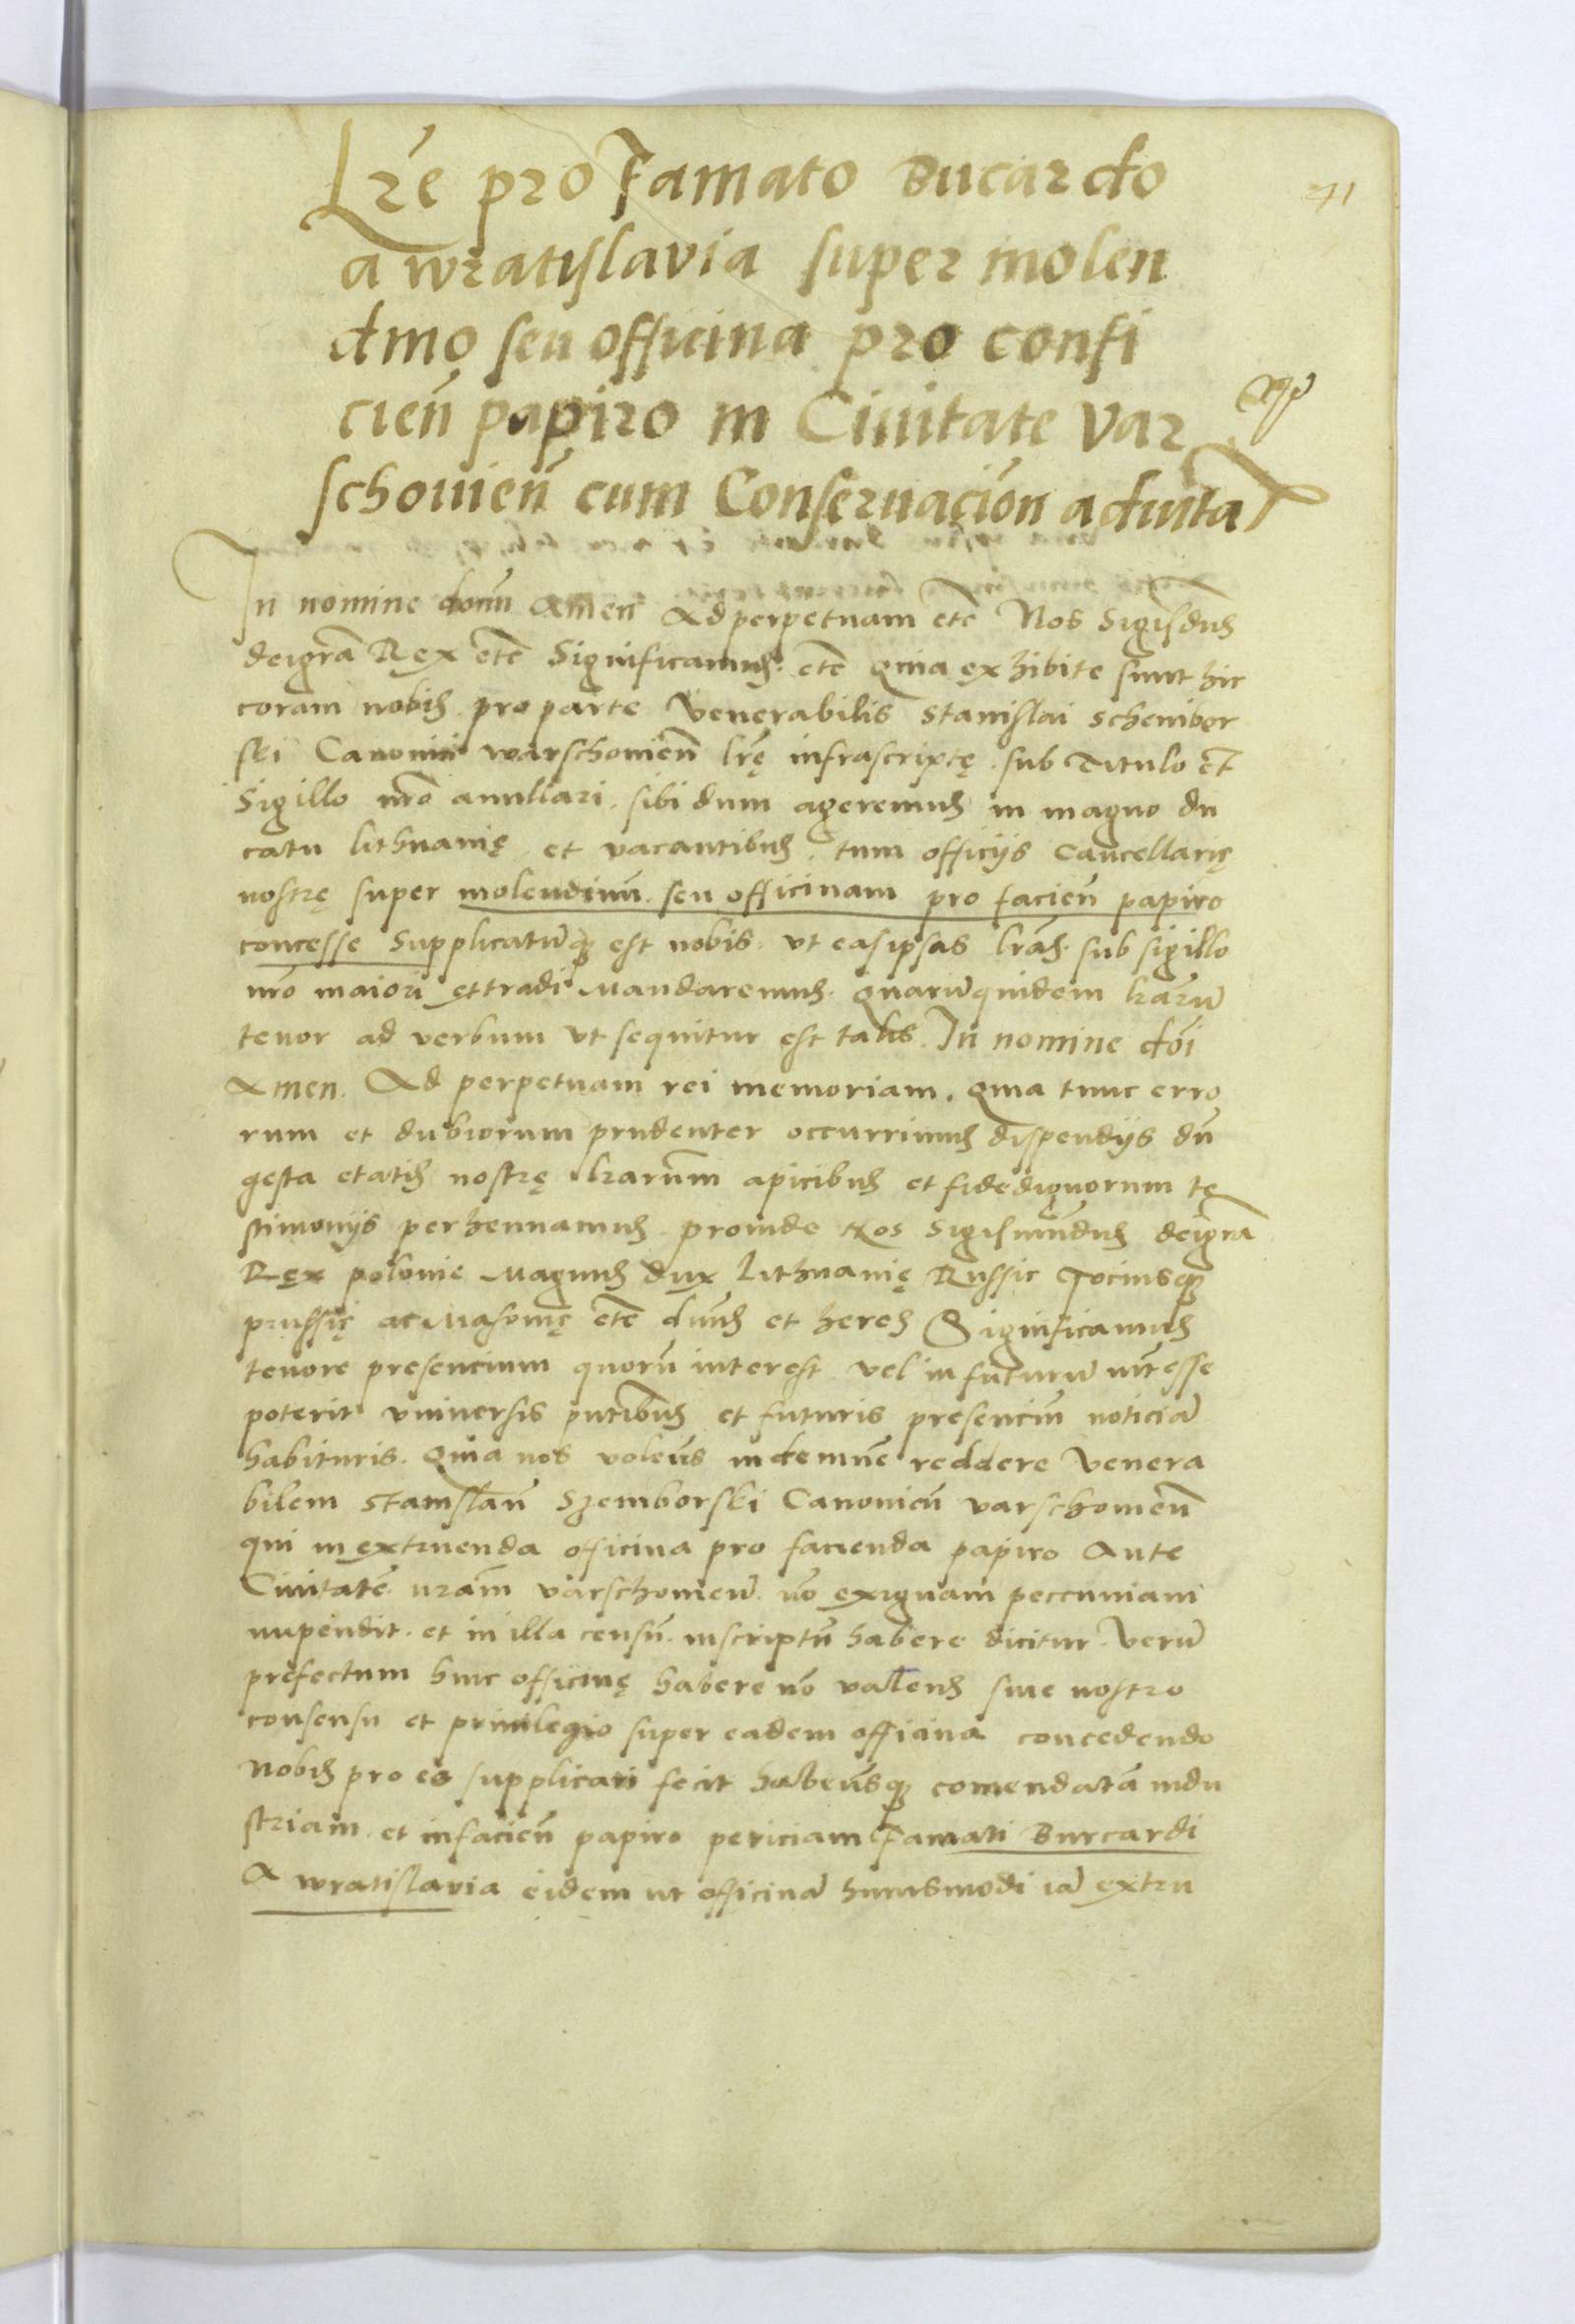 Lr̃e pro Famato Bucardo
71
a wratislavia super molen
dino seu officina pro confi
cień papiro in Ciuitate Var
schouień cum Conseruaciõn aduita
In nomine domĩ Amen Ad perpetuam etc̃ Nos Sigisdus
dei gr̃a Rex etc̃ Significamus. etc̃ Quia exhibite sunt hic
coram nobis pro parte Venerabilis Stanislai Schember
ski Canonici warschouień lr̃ę infrascriptę. sub Titulo et
Sigillo nr̃o anullari. sibi dum ageremus in magno du
catu lithuanię et vacantibus. tum officijs Cancellarię
nostrę super molendinũ. seu officinam pro facień papiro
concesse Supplicatũq est nobis. vt easipsas lr̃as. sub sigillo
nr̃o maiori et tradi Mandaremus. Quarũquidem lr̃arũ
tenor ad verbum vt sequitur est talis. In nomine dõi
Amen. Ad perpetuam rei memoriam. Quia tunc erro
rum et dubiorum prudenter occurrimus dispendijs dũ
gesta etatis nostrę lr̃arum apicibus et fidedignorum te
stimonijs perhennamus. proinde Nos Sigismũdus dei gr̃a
Rex polonie Magnus dux Lithuanię Russie Tociusq
prussię ac Masouię etc̃ dñus et heres Significamus
tenore presencium quorũ interest vel in futurũ intẽesse
poterit vniuersis pñtibus et futuris presenciũ noticiã
habituris. Quia nos volẽns indemnẽ reddere Venera
bilem Stanislaũ Szemborski Canonicũ varschouień
qui in extruenda officina pro facienda papiro Ante
Ciuitatẽ nr̃am varschouień. nõ exiguam peccuniam
inpendit. et in illa censũ. inscriptũ habere dicitur. Verũ
prefectum huic officinę habere nõ valens sine nostro
consensu et priuilegio super eadem officina concedendo
Nobis pro eo supplicari fecit habeñsq comendatã indu
striam. et in facień papiro periciam Famati Burcardi
A wratislavia eidem ut officinã huiusmodi iã extru